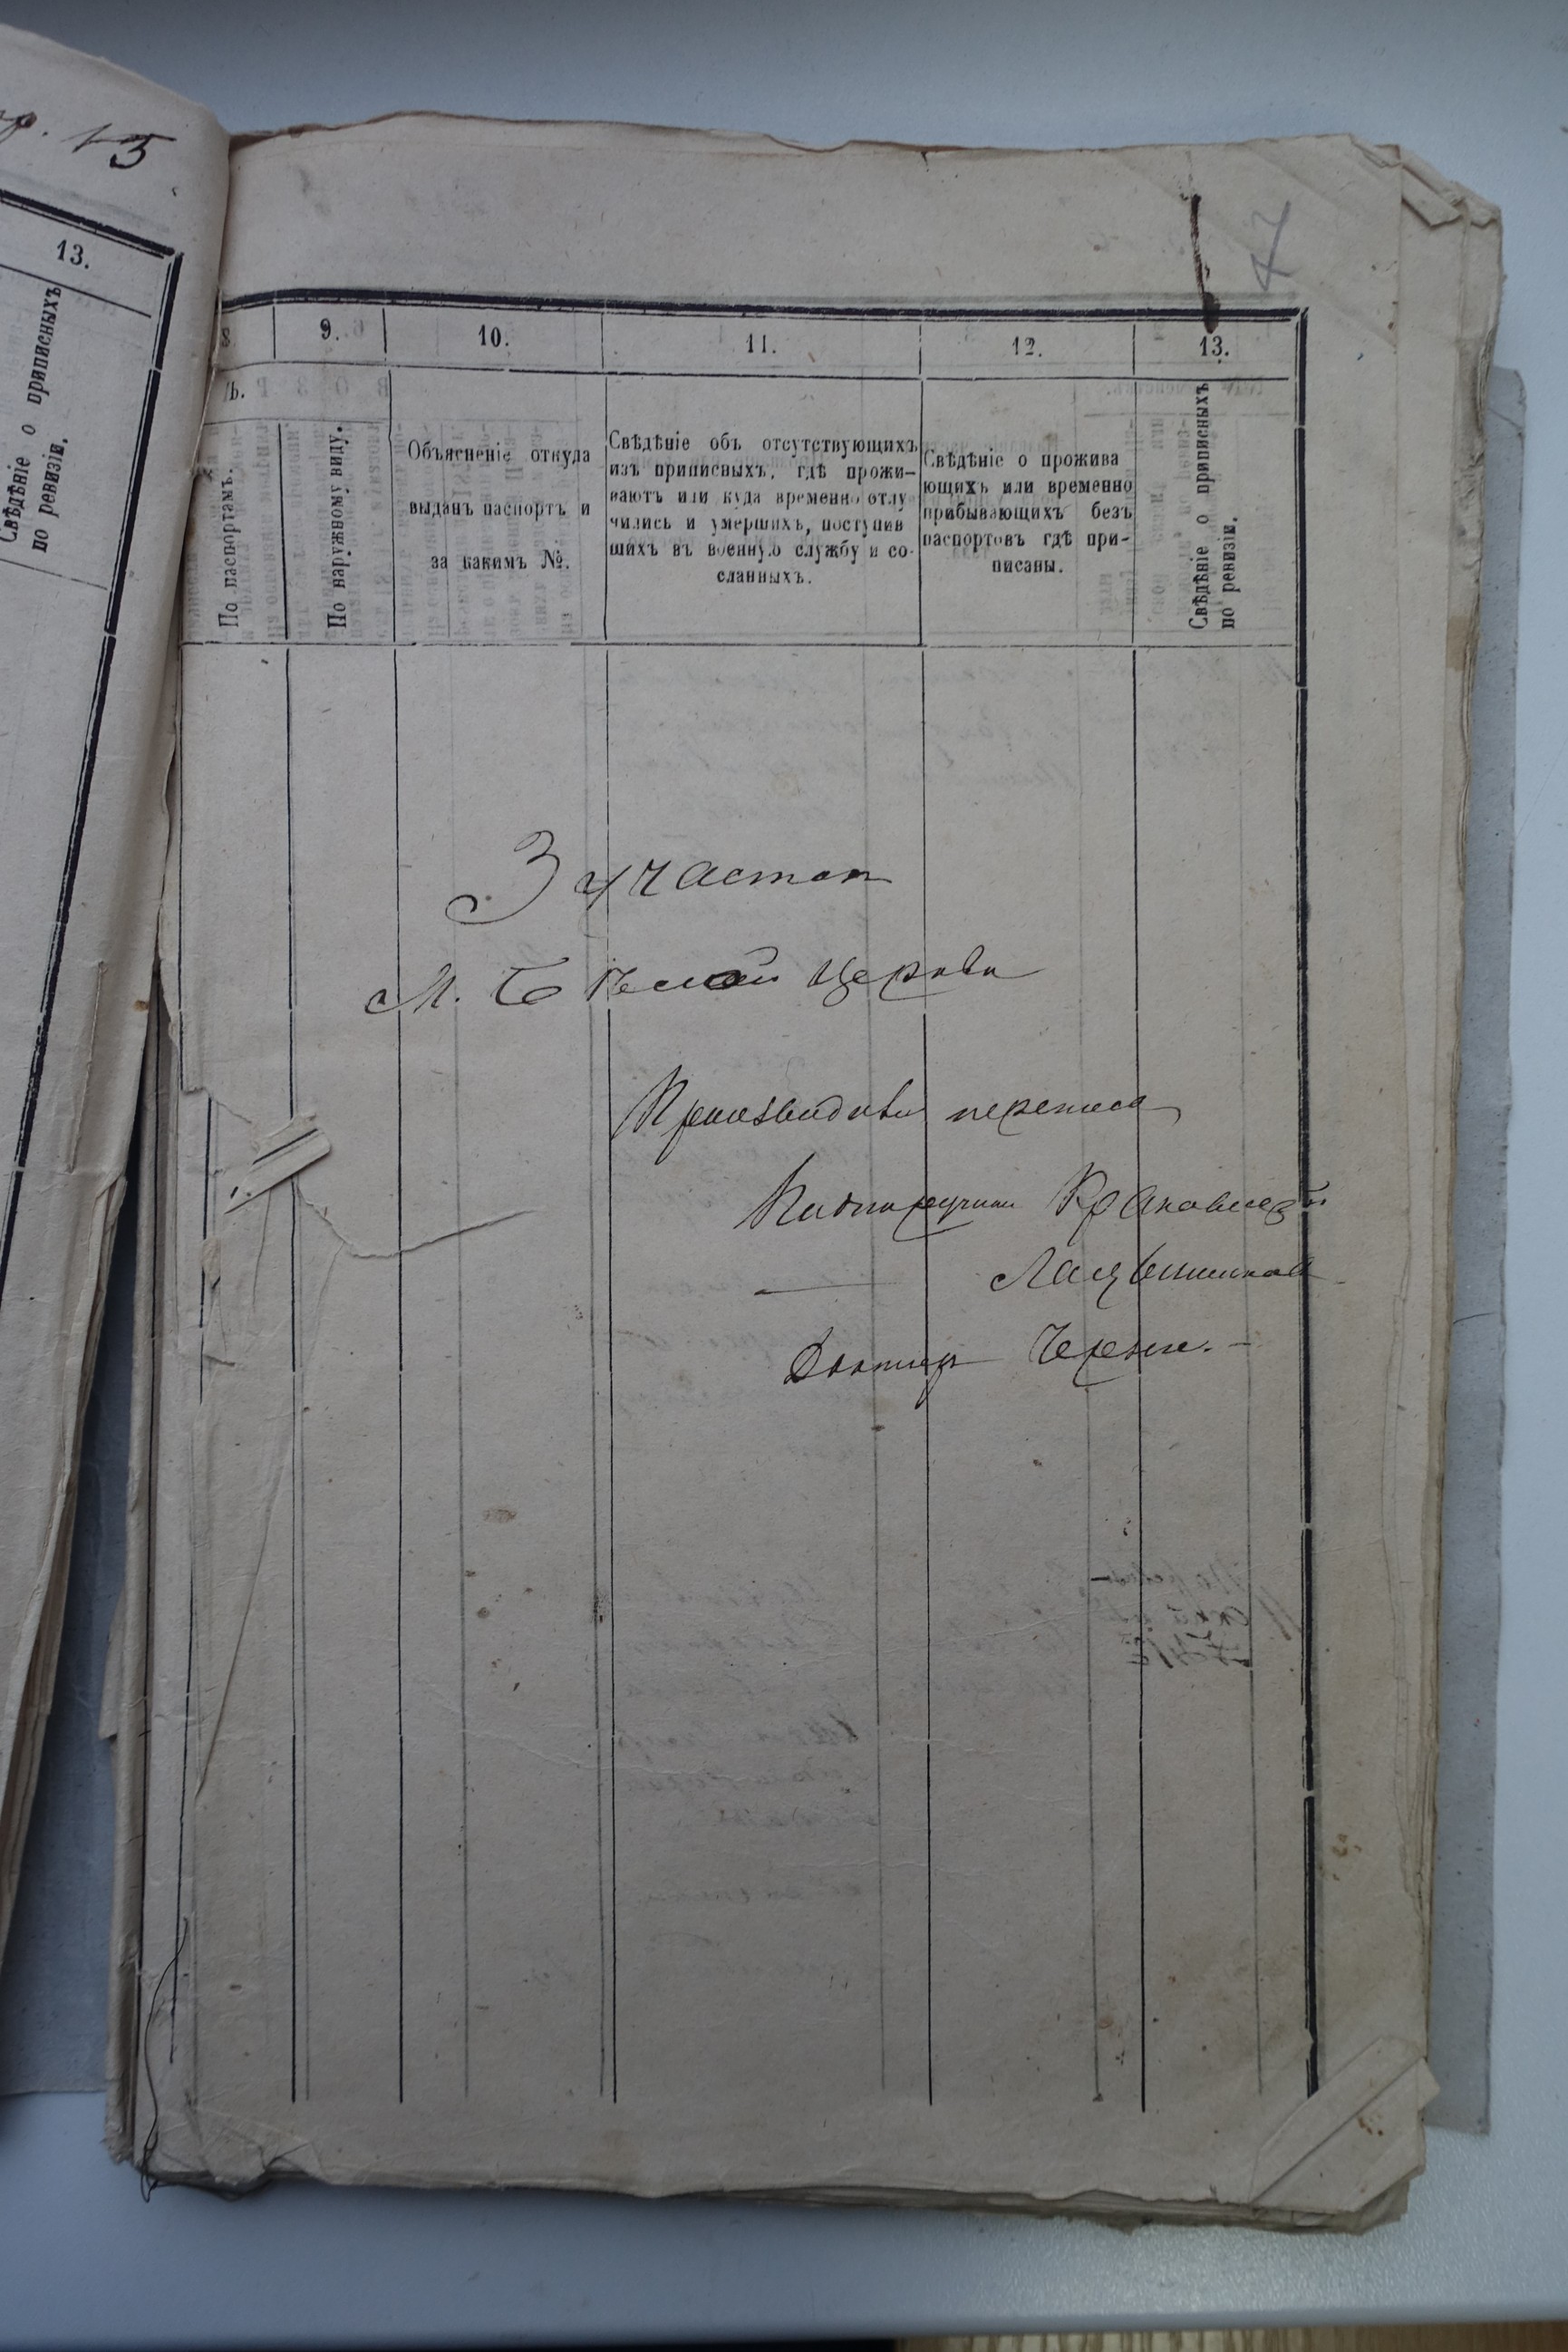 15
13.
Свѣдѣніе о приписныхъ
по ревизіи.
47
8 9. 10. 11. 12. 13.
По паспортамъ.
По наружному виду.
Объясненіе откуда
выданъ паспортъ и
за какимъ №.
Свѣдѣніе объ отсутствующихъ
изъ приписныхъ, гдѣ прожи-
ваютъ или куда временно отлу
чились и умершихъ, поступив
шихъ въ военную службу и со-
сланныхъ.
Свѣдѣніе о прожива
ющихъ или временно
прибывающихъ безъ
паспортовъ гдѣ при-
писаны.
Свѣдѣніе о приписныхъ
по ревизіи.
3 участок
М. Бѣлой Церкви
Производивш перепись
Подпоручики
Докторъ